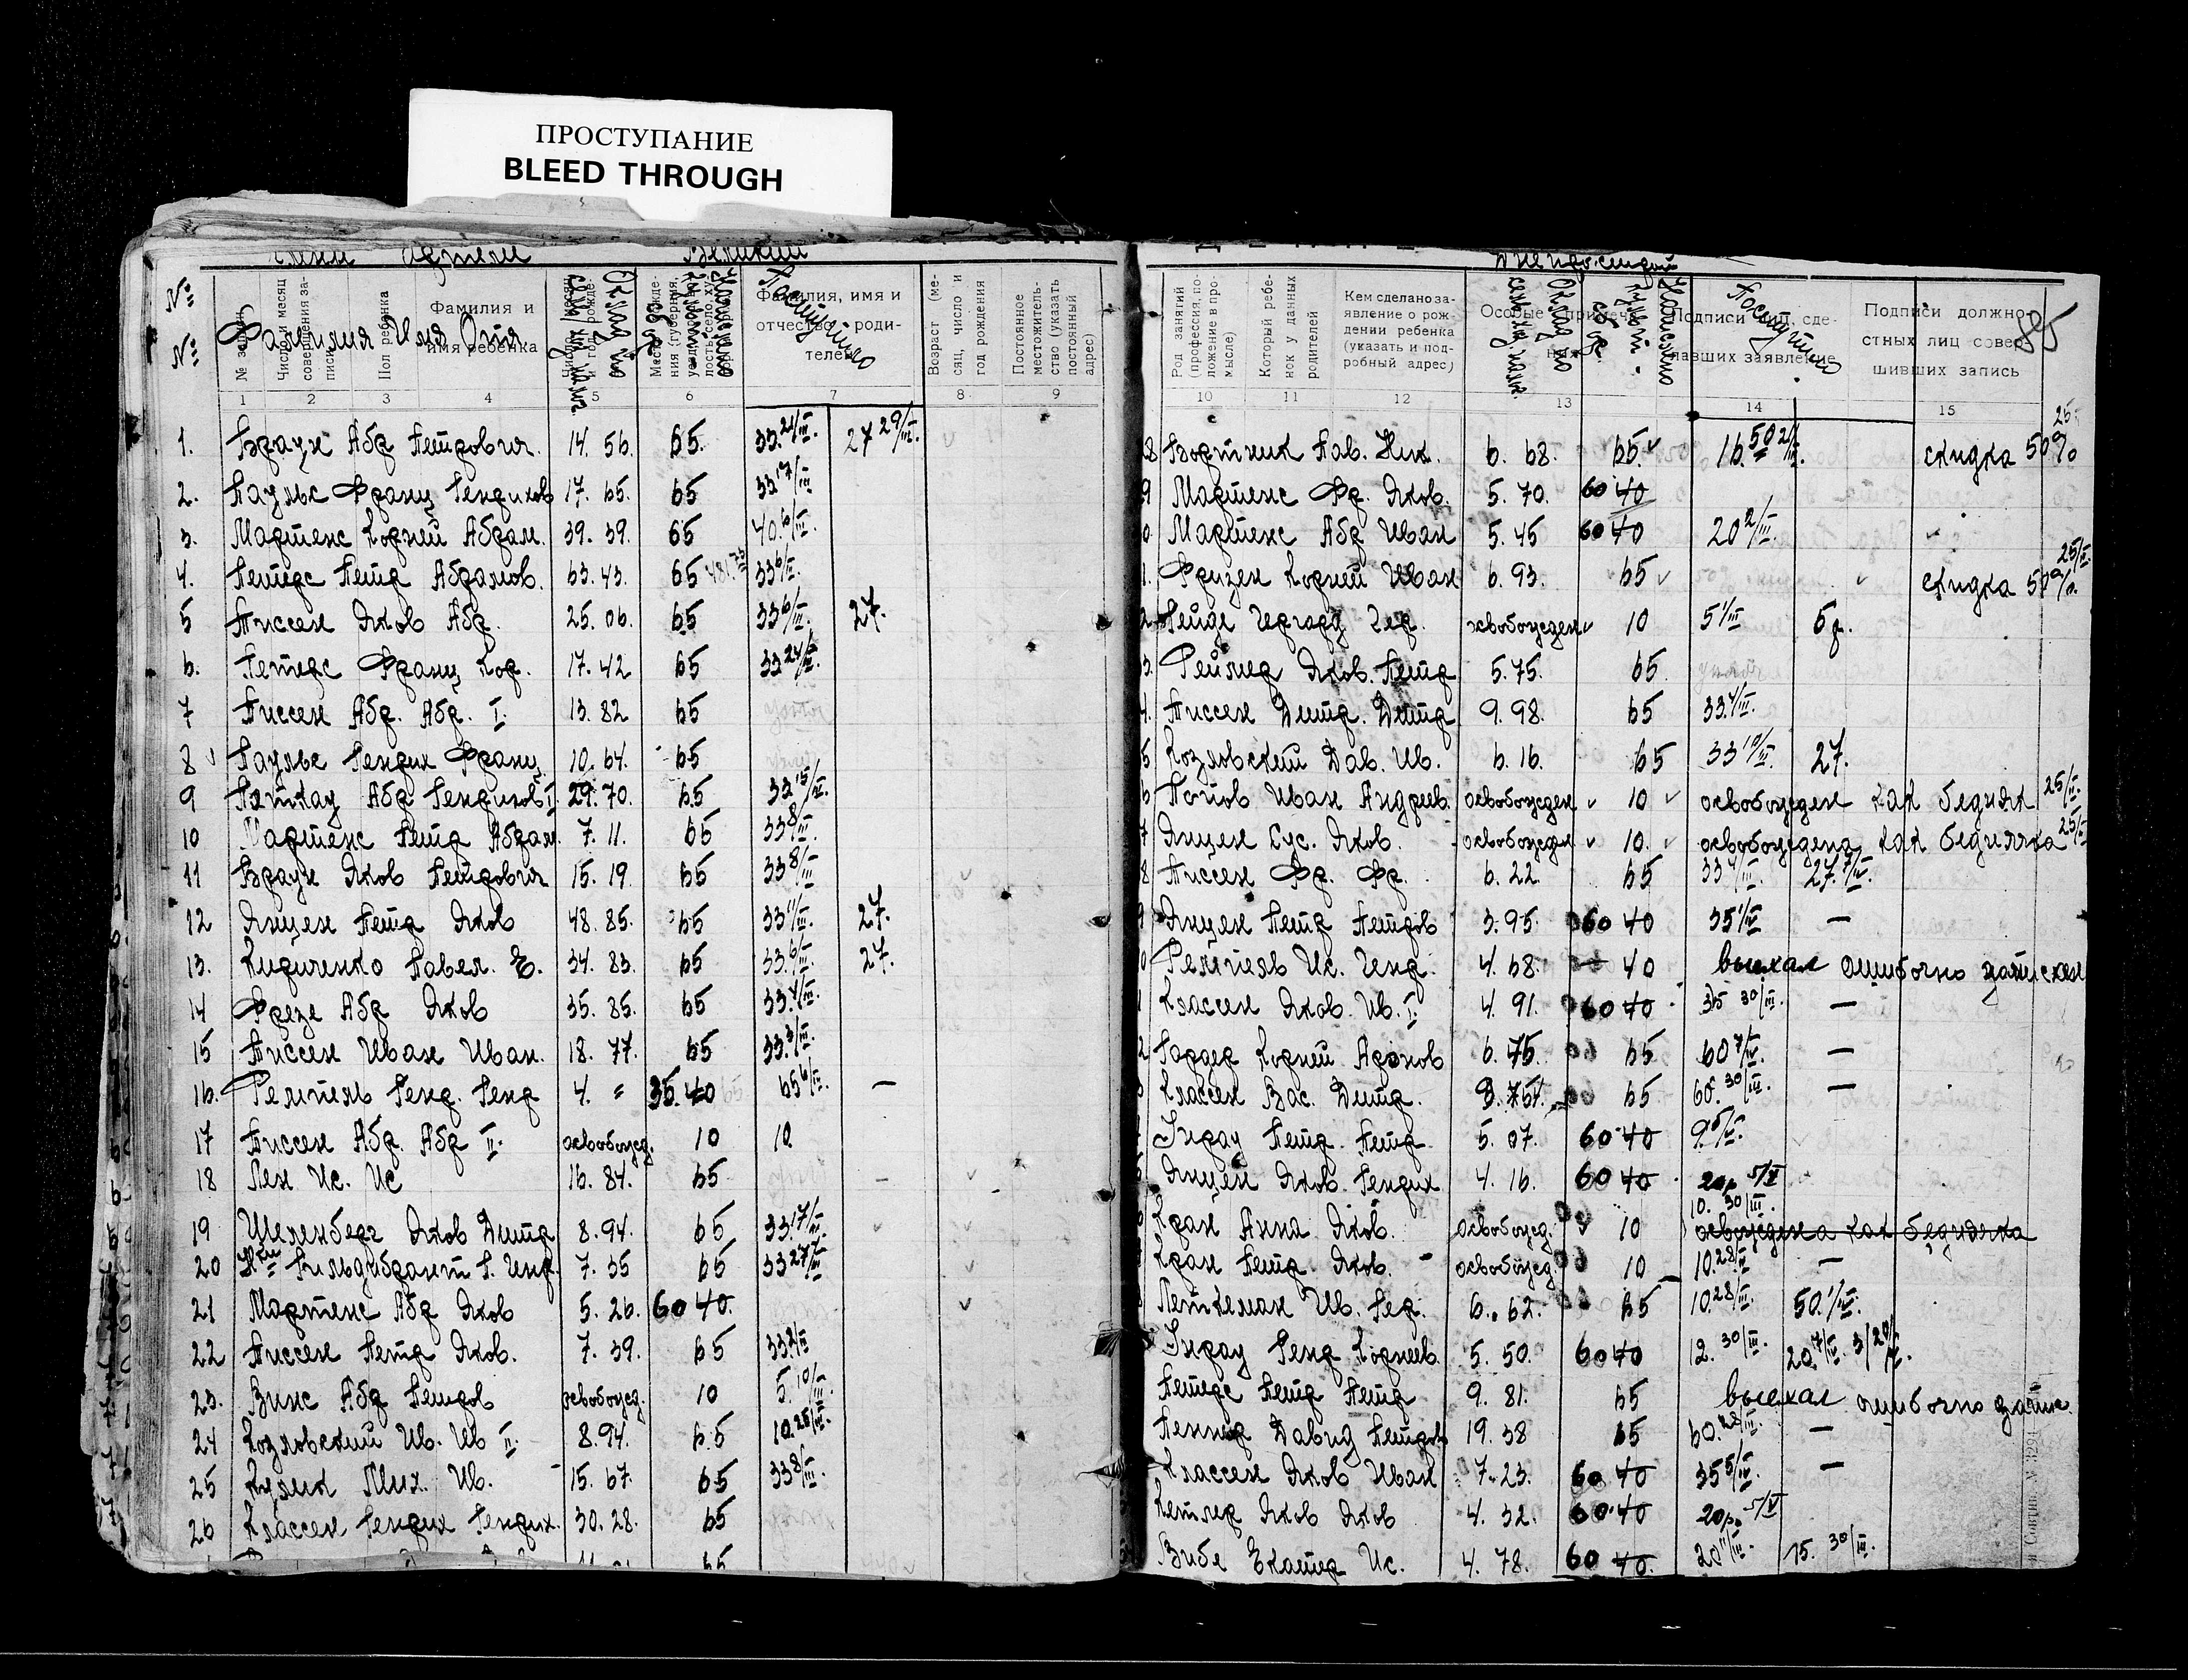 ПРОСТУПАНИЕ
BLEED THROUGH
Члены Артели Великий
№№
Фамилия Имя Отч.
№ записи
Число и месяц совершения записи
Пол ребенка
Фамилия и имя ребенка
Фамилия, имя и отчество родителей
Поступило
Возраст (месяц, число и год рождения
Постоянное местожительство (указать постоянный адрес)
1 2 3 4 5 6 7 8 9
1. Браун Абр Петрович. 14. 56. 65. 33. 24/III. 27 29/III.
2. Паульс Франц Гендриков 17. 65. 65 33 17/III
3. Мартенс Корней Абрам. 39. 39. 65 40. 6/III.
4. Петерс Петр Абрамов. 63. 43. 65 33 6/III.
5 Тиссен Яков Абр. 25. 06. 65 33 6/III. 27.
6. Петерс Франц Кор. 17. 42 65 33 24/III.
7 Тиссен Абр. Абр. I. 13. 82 65
8 Паульс Гендрих Франц. 10. 64. 65
9 Пэткау Абр Гендриков I. 29. 70. 65 33 15/III.
10 Мартенс Петр Абрам. 7. 11. 65 33 8/III.
11 Браун Яков Петрович 15. 19. 65 33 8/III
12 Янцен Петр Яков 48. 85. 65 33 11/III. 27.
13. Кириченко Павел. Е. 34. 83. 65 33. 6/III. 27.
14 Фрезе Абр Яков 35. 85. 65 33. 4/III.
15 Тиссен Иван Иван. 18. 77. 65 33. 3/III.
16. Ремпель Генр. Генр 4. = 35. 40 65 6/III. —
17 Тиссен Абр. Абр II. освобожд. 10 10.
18 Лен Ис. Ис 16. 84. 65
19 Шеленберг Яков Дитр 8. 94. 65 33 17/III.
20 Гильдебрант П. Генр. 7. 35 65 33 27/III
21 Мартенс Абр Яков 5. 26. 60 40.
22 Тиссен Петр Яков. 7. 39. 65 33 2/III
23. Винс Абр Петров освобожд. 10 5. 10/III.
24 Козловский Ив. Ив II. 8. 94. 65 10. 25/III.
25 Кулик Мих. Ив. 15. 67. 65 33 8/III.
26 Классен Гендрих Гендрих. 30. 28. 65
Днепрострой
85
Род занятий (профессия, положение в промысле)
Который ребенок у данных родителей
Кем сделано заявление о рождении ребенка (указать и подробный адрес)
Особые примечания
Подписи лиц, сделавших заявление
Поступило
Подписи должностных лиц совершивших запись
10 11 12 13 14 15
8 Бортник Пав. Ник. 6. 68. 65. 16. 50 2/III. скидка 50% 25.
9 Мартенс Фр. Яков. 5. 70. 60 40
0. Мартенс Абр Иван 5. 45 60 40 20 2/III.
1. Фризен Корней Иван 6. 93. 65 скидка 50%. 25/II
2 Нейде Гергард Гер. освобожден 10 5 1/III 5 р.
3. Реймер Яков. Петр 5. 75. 65.
4. Тиссен Дитр. Дитр 9. 98. 65 33. 4/III.
5 Козловский Дав. Ив. 6. 16. 65 33 10/III. 27.
6 Попов Иван Андреев. освобожден 10 освобожден как бедняк 25/II.
7 Янцен Сус. Яков. освобожден 10. освобождена как беднячка 25/II
8 Тиссен Фр. Фр. 6. 22 65 33 4/III. 27. 7/IV.
9 Янцен Петр Петров 3. 95. 60 40 35 1/IV —
0 Ремпель Ис. Генр. 4. 68. 40 выехал ошибочно записан
1 Классен Яков. Ив. I. 4. 91. 60 40. 35 30/III. —
2 Гардер Корней Аронов 6. 75. 65 60 7/IV. —
3 Классен Вас. Дитр. 65 60. 30/III. —
Индрау Петр. Петр. 5. 07. 60 40 9. 5/V.
Янцен Яков. Гендрих 4. 16. 60 40 20р. 5/V
10. 30/III.
Кран Анна Яков. освобожд. 10 освобождена как беднячка
Кран Петр. Яков. освобожд. 10 10. 28/II —
Петкеман Ив. Гер. 6. 62. 65 10. 28/III. 50. 1/IV.
Индрау Генр Корнеев. 5. 50. 60 40 12. 30/III. 20. 7/IV. 3/20/V.
Петерс Петр Петр 9. 81. 65 выехал ошибочно запис.
Пеннер Давид Петров 19. 38 65 60. 28/III. —
Классен Яков Иван 7. 23. 60 40 35 5/IV. —
Кетлер Яков Яков 4. 32. 60 40 20р. 5/V
Вибе Екатер Ис. 4. 78. 60 40. 20 11/III. 15. 30/III.